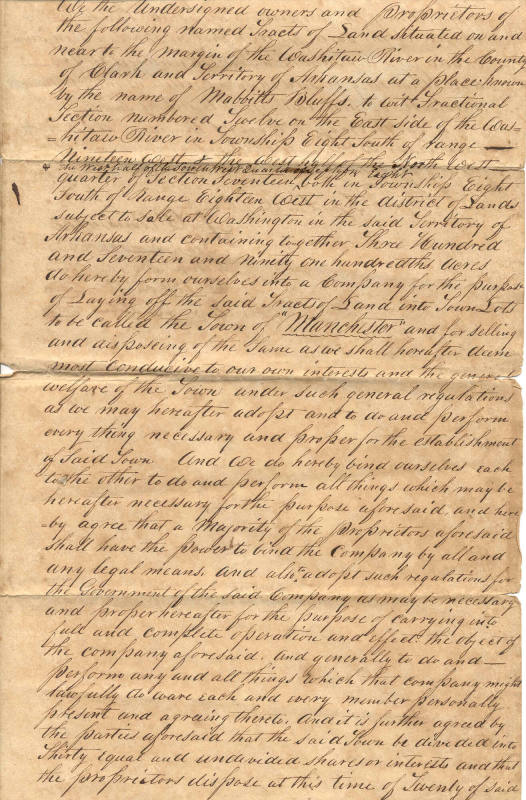 We the Undersigned owners and Proprietors of
the following named Tracts of Land situated on and
near to the margin of the Washitaw River in the County
of Clark and Territory of Arkansas at a place known
by the name of Mabbitts Bluffs. to wit Fractional
Section numbered Twelve on the East side of the Was=
=hitaw River in Township Eight South of range
Nineteen West & the West half of the North West
the West half of the South West Quarter of Section Eight
quarter of Section Seventeen both in Township Eight
South of Range Eighteen West in the district of Lands
subject to sale at Washington in the said Territory of
Arkansas and containing together Three Hundred
and Seventeen and ninity one hundredths acres
do hereby form ourselves into a Company for the purpose
of Laying off the said Tracts of Land into Town Lots
to be called the Town of "Manchester" and for selling
and disposeing of the Same as we shall hereafter deem
most conducive to our own interests and the general
welfare of the Town under such general regulations
as we may hereafter adopt and to do and perform
every thing necessary and proper for the establishment
of Said Town And we do hereby bind ourselves each
to the other to do and perform all things which may be
hereafter necessary for the purpose aforesaid and here
=by agree that a Majority of the Proprietors aforesaid
shall have the power to bind the Company by all and
any legal means. And also adopt such regulations for
the Government of the said Company as may be necessary
and proper hereafter for the purpose of carrying into
full and complete operation and effect the object of
the company aforesaid. And generally to do and
perform any and all things which that company might
lawfully do ware each and every member personally
present and agreeing thereto. And it is further agreed by
the parties aforesaid that the said Town be divided into
Thirty equal and undivided shares or interests and that
the proprietors dispose at this time of Twenty of said